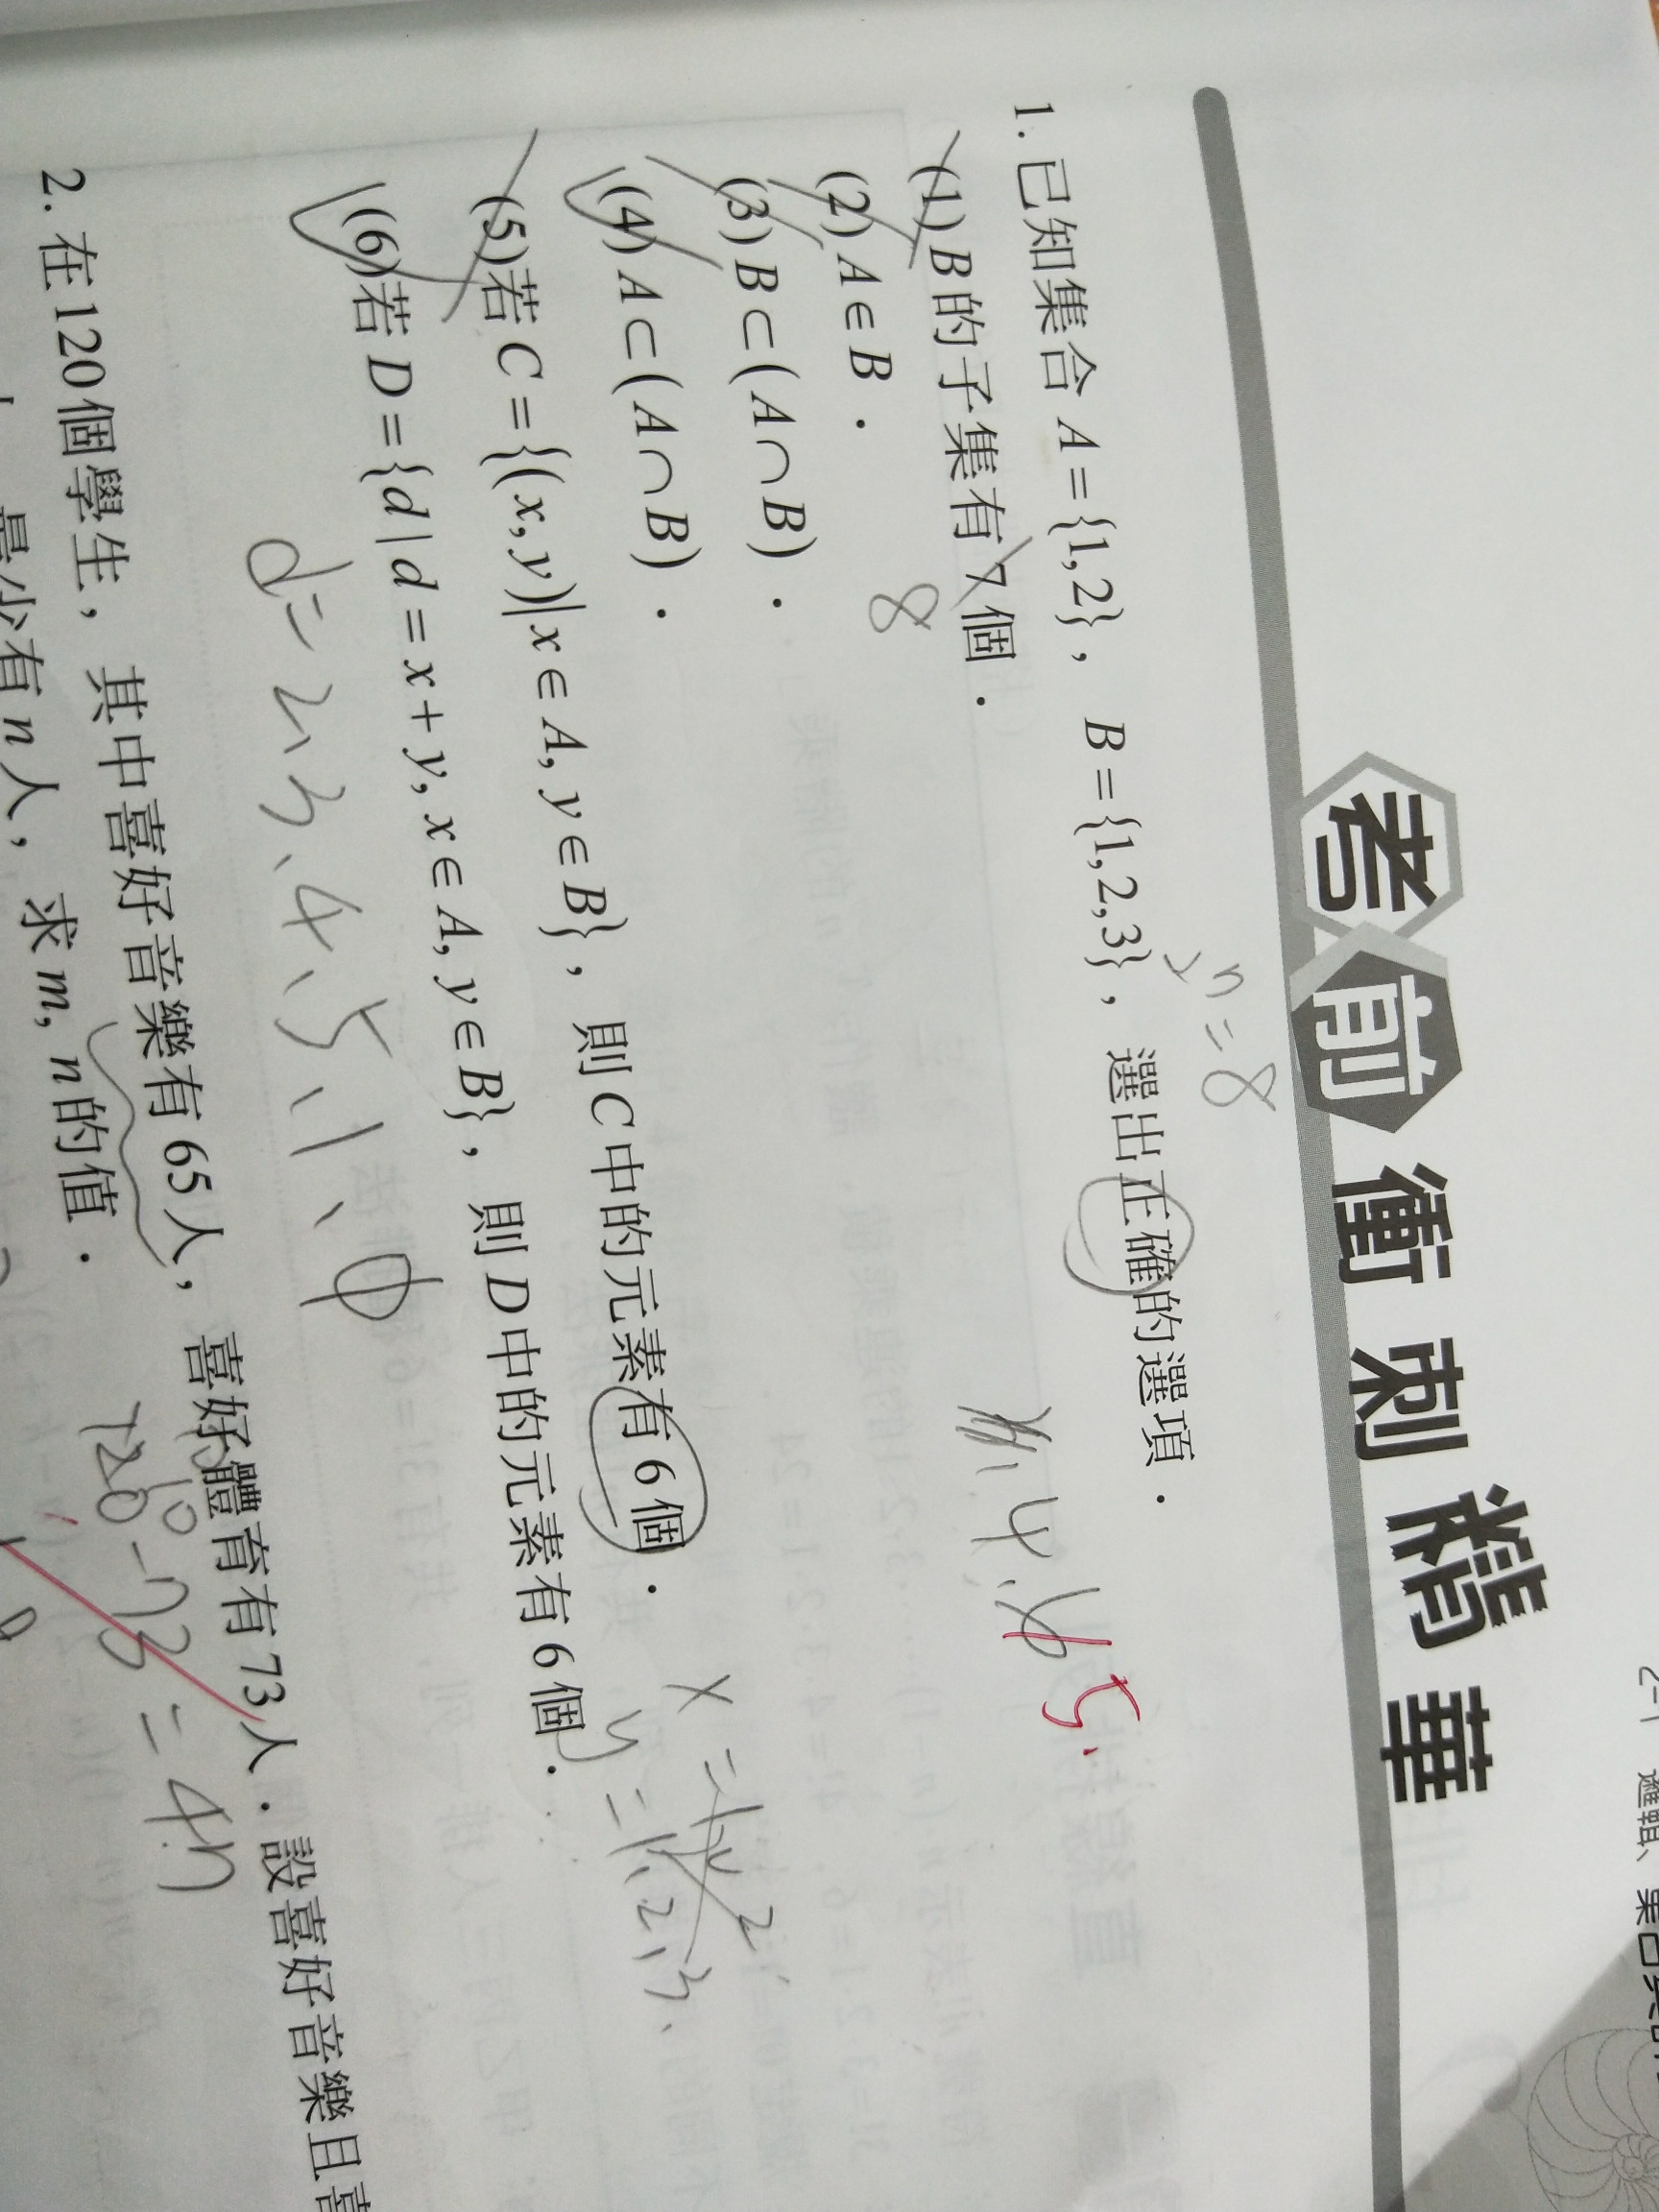 2-1 邏輯、集合與計
考前衝刺精華
2ⁿ=8
1.已知集合 A={1,2}，B={1,2,3}，選出正確的選項．
(1)B的子集有7個．
8
4.6 5.
(2)A∈B．
(3)B⊂(A∩B)．
(4)A⊂(A∩B)．
(5)若C={(x,y)|x∈A,y∈B}，則C中的元素有6個．
x=1,2
y=1,2,3、
(6)若D={d|d=x+y,x∈A,y∈B}，則D中的元素有6個．
d=2、3、4、5、1、φ
2.在120個學生，其中喜好音樂有65人，喜好體育有73人．設喜好音樂且喜
120-73=47
最少有n人，求m,n的值．